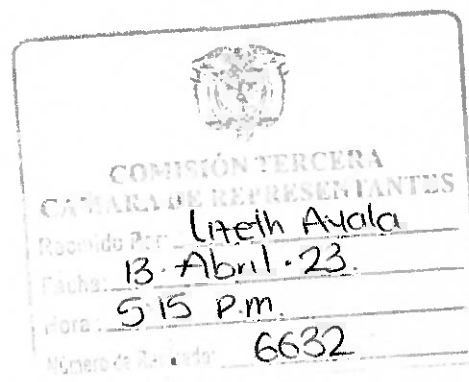 COMISIÓN TERCERA
CÁMARA DE REPRESENTANTES
Recibido Por: Lizeth Ayala
Fecha: 13. Abril. 23.
Hora: 5 15 p.m.
Número de Radicado: 6632